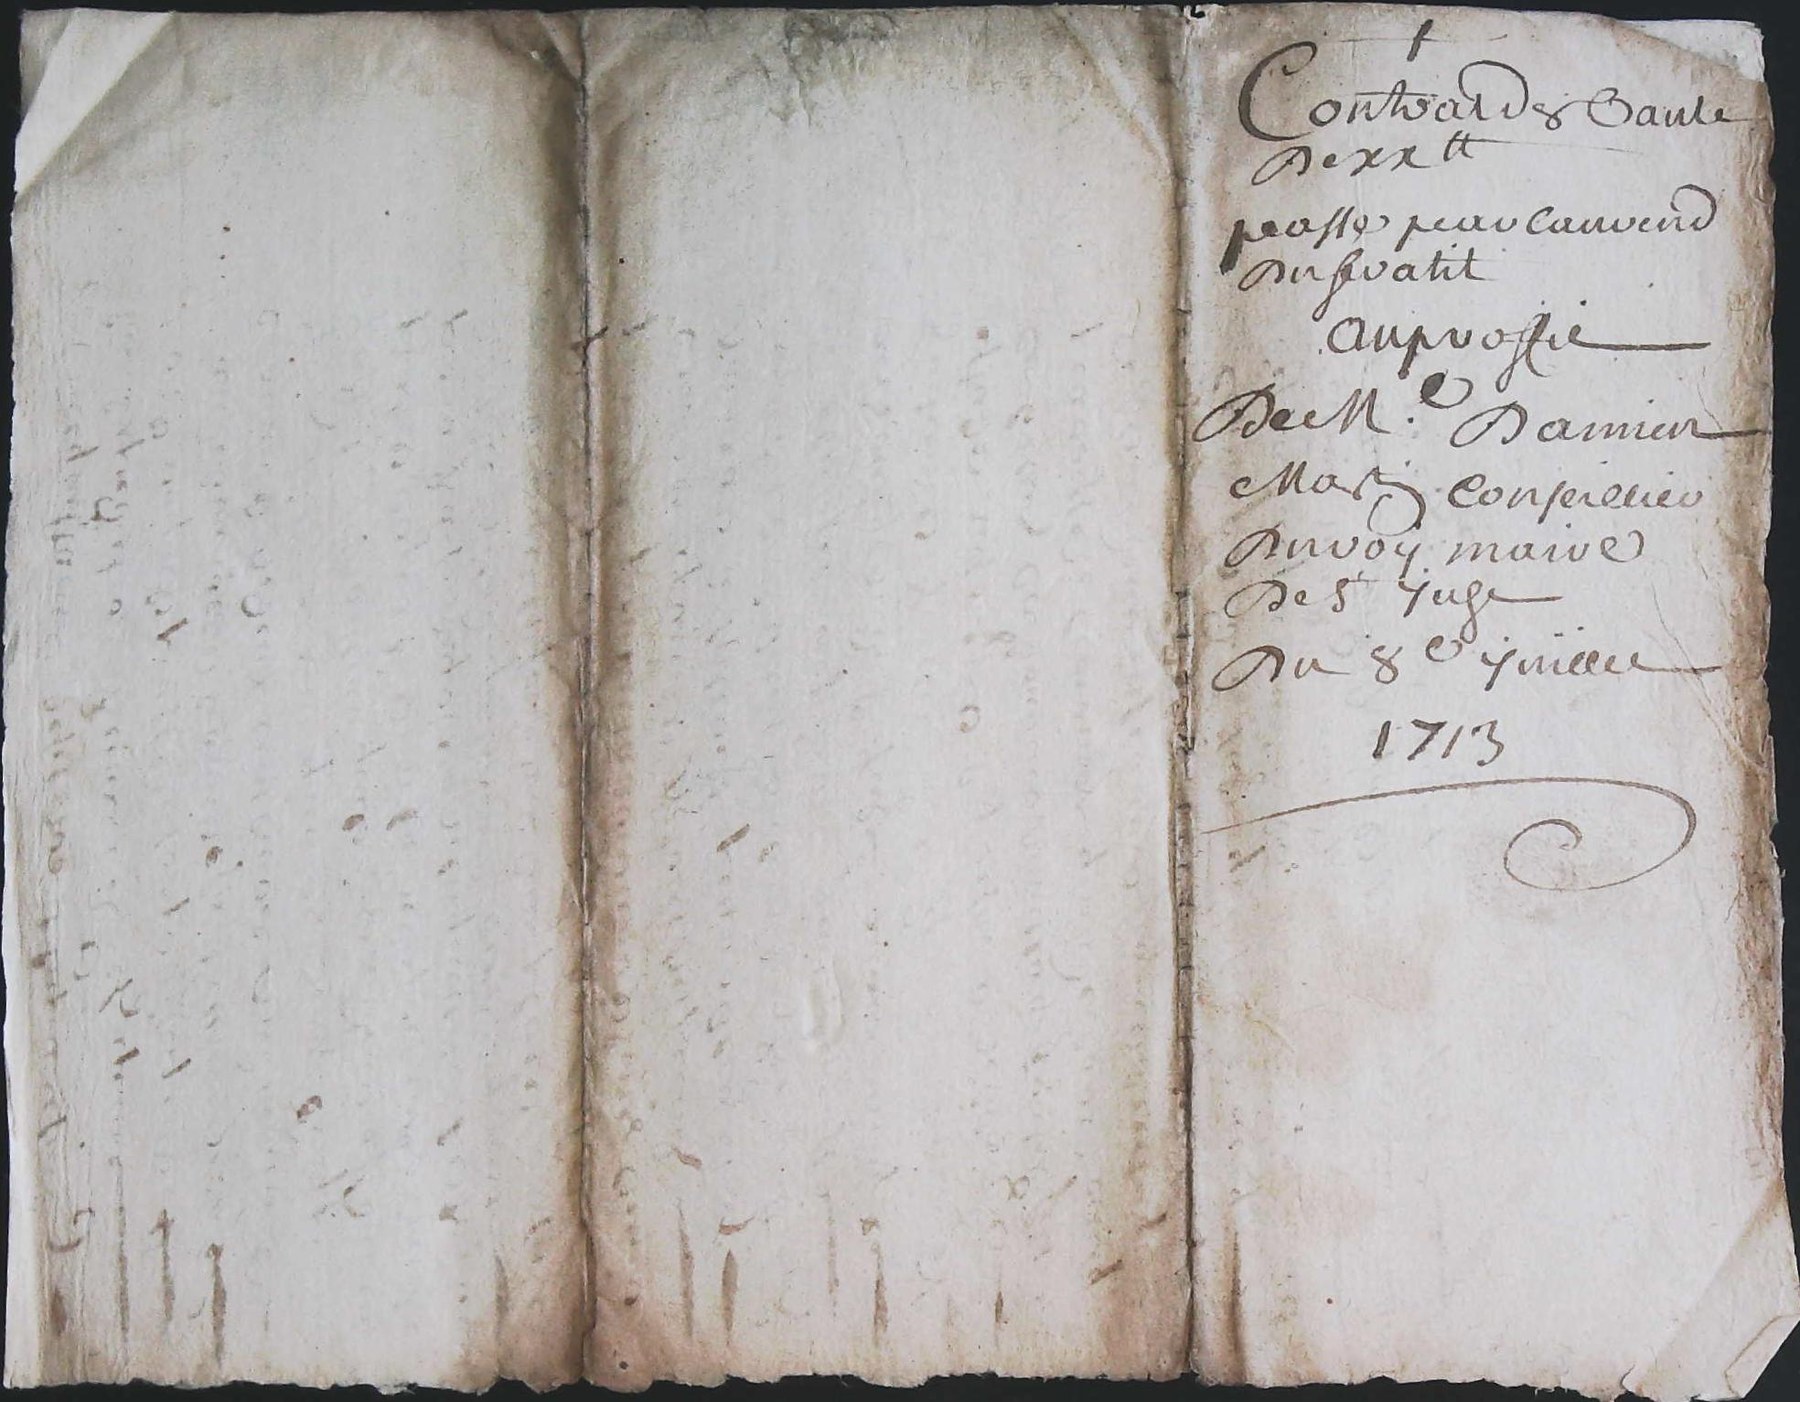 Contrat de Rante
De xx tt
passe par Lauvend
Du fratit
Au proffit
De M.e Damien
Marti Conseillier
Du roy maire
De St yuge
Du 8e juillet
1713